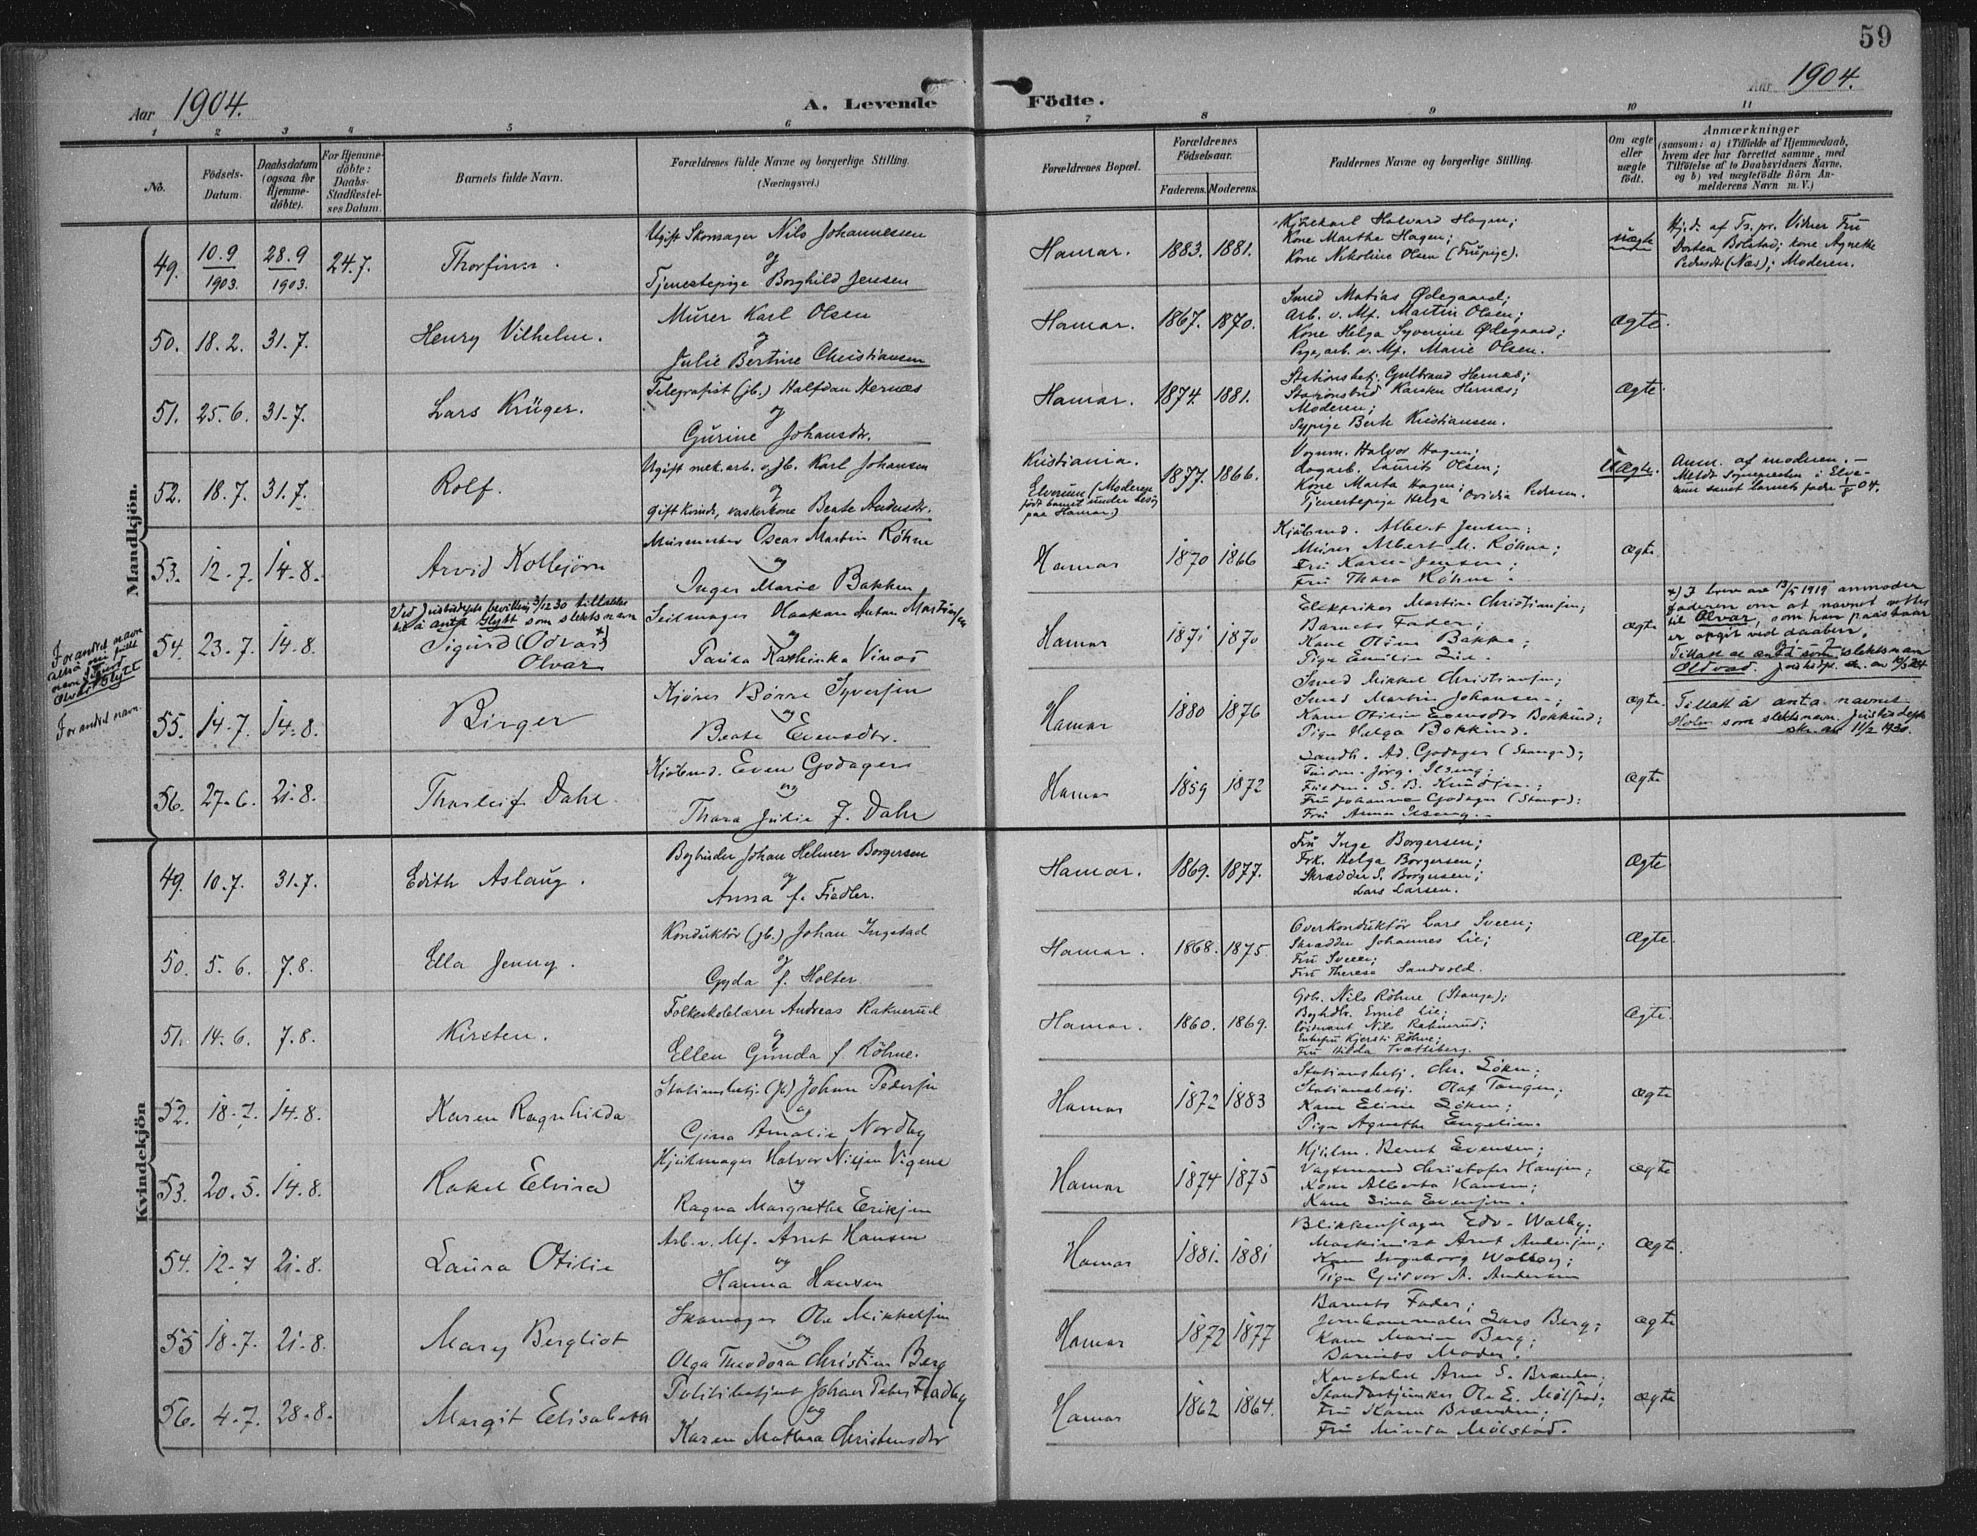 59
Aar 1904.
A. Levende Födte.
Aar 1904.
1 2 3 4 5 6 7 8 9 10 11
No.
Födsels-Datum.
Daabsdatum (ogsaa for Hjemme-döbte).
For Hjemme-döbte: Daabs-Stadfæstel-ses Datum.
Barnets fulde Navn.
Forældrenes fulde Navne og borgerlige Stilling. (Næringsvei.)
Forældrenes Bopæl.
Forældrenes Födselsaar.
Faderens. Moderens.
Faddernes Navne og borgerlige Stilling.
Om ægte eller uægte födt.
Anmærkninger
(saasom: a) i Tilfælde af Hjemmedaab,
hvem der har forrettet samme, med
Tilföielse af to Daabsvidners Navne,
og b) ved uægtefödte Börn An-
melderens Navn m. V.)
Mandkjön.
49. 10.9 1903. 28.9 1903. 24.7. Thorfinn.
Ugift Skomager Nils Johannessen
og
Tjenestepige Borghild Jensen
Hamar. 1883. 1881.
Halvard Hagen;
Kone Marthe Hagen;
Kone Nikoline Olsen
uægte
Hj.d. af Ts. pr. Vidner Fru
Dortea Bolstad; kone Agnethe
(Næs); Moderen.
50. 18.2. 31.7. Henry Vilhelm.
Murer Karl Olsen
og
Julie Bertine Christiansen
Hamar. 1867. 1870.
Smed Matias Ødegaard;
Arb. v. Mf. Martin Olsen;
Kone Helga Syverine Ødegaard;
Pige, arb. v. Mf. Marie Olsen.
ægte.
51. 25.6. 31.7. Lars Krüger.
Telegrafist (jb.) Halfdan Hernæs
og
Gurine Johansdr.
Hamar. 1874. 1881.
Stationsbetj. Gulbrand Hernæs;
Karsten Hernæs;
Moderen;
Sypige Berte Kristiansen.
ægte.
52. 18.7. 31.7. Rolf.
Ugift mek. arb. v. jb. Karl Johansen
og
gift Kvinde, vaskerkone Beate Andersdr.
Kristiania.
Elverum (Moderen
født barnet under besøg
paa Hamar.)
1877. 1866.
Vognm. Halvor Hagen;
Laurits Olsen;
Kone Marta Hagen;
Tjenestepige Helga Ovidia Pedersen.
uægte.
Anm. af moderen. –
Meldt Sognepresten i Elve-
rum samt barnets fader 1/8 04.
53. 12.7. 14.8. Arvid Kolbjørn
Murmester Oscar Martin Røhne
og
Inger Marie Bakken
Hamar 1870 1866
Kjøbmd. Albert Jensen;
Murer Albert M. Røhne;
Fru Karen Jensen;
Fru Thora Røhne.
ægte
Forandret navn
Olvar Blyt
54. 23.7. 14.8.
Ved Justisdepts bevilling 3/12 30 tillades
til å anta Blytt som slektsnavn
Sigurd (Odvar) x)
Olvar
Seilmager Haakon Anton Martinsen
og
Paula Kathinka Vinas
Hamar 1871 1870
Elektriker Martin Christiansen;
Barnets Fader;
Kone Oline Bakke;
Pige Emilie Lie.
ægte
x) I brev av 13/5 1919 anmoder
faderen om at navnet rettes
til Olvar, som han paastaar
er opgit ved daaben.
Tillatt å anta som slektsnavn
Oldvad.
Forandret navn.
55. 14.7. 14.8. Birger
Kjører Børre Syversen
og
Beate Evensdr.
Hamar 1880 1876
Smed Mikkel Christiansen;
Smed Martin Johansen;
Kone Otilie Evensdr Bekkind;
Pige Helga Bekkind.
ægte.
Tillatt å anta navnet
Holm som slektsnavn. Justisdepts
skr. av 11/2 1930.
56. 27.6. 21.8. Thorleif Dahl.
Kjøbmd. Even Gjødager
og
Thora Julie f. Dahl
Hamar 1859 1872
Landh. Ad. Gjødager (Stange);
Jørg. Ilseng;
S. B. Knudsen;
Fru Johanne Gjødager (Stange);
Fru Anna Ilseng.
ægte
Kvindekjön
49. 10.7. 31.7. Edith Aslaug.
Bogbinder Johan Helmer Borgersen
og
Anna f. Fiedler.
Hamar. 1869. 1877.
Fru Inga Borgersen;
Frk. Helga Borgersen;
Skrædder S. Borgersen;
Lars Larsen.
ægte
50. 5.6. 7.8. Ella Jenny.
Konduktør (jb.) Johan Ingstad
og
Gyda f. Holter
Hamar. 1868. 1875.
Overkonduktør Lars Sveen;
Skrædder Johannes Lie;
Fru Sveen;
Fru Therese Sandvold.
ægte.
51. 14.6. 7.8. Kirsten.
Folkeskolelærer Andreas Raknerud
og
Ellen Gunda f. Røhne.
Hamar. 1860. 1869.
Gbr. Nils Røhne (Stange);
Emil Lie;
Nils Raknerud;
Enkefru Kjersti Røhne;
Fru Hilda Trætteberg.
ægte.
52. 18.7. 14.8. Karen Ragnhilda
Stationsbetj. (jb) Johan Pedersen
og
Gina Amalie Nordby
Hamar 1872 1883
Stationsbetj. Chr. Løken;
Stationsbetj. Olaf Tangen;
Kone Eline Løken;
Pige Agnethe Engelien.
ægte
53. 20.5. 14.8. Rakel Elvira
Hjulmager Halvor Nilsen Vigene
og
Ragna Margrethe Eriksen
Hamar 1874 1875
Hjulm. Bernt Evensen;
Vagtmand Christofer Hansen;
Kone Alberta Hansen;
Kone Lina Evensen.
ægte
54. 12.7 21.8. Laura Otilie
Arb. v. Mf. Arnt Hansen
og
Hanna Hansen
Hamar 1881. 1881
Blikkenslager Edv. Walby;
Maskinist Arnt Andersen;
Kone Ingeborg Walby;
Pige Gudvor A. Andersen
ægte.
55 18.7. 21.8. Mary Bergliot
Skomager Ole Mikkelsen
og
Olga Theodora Christine Berg
Hamar 1872 1877
Barnets Fader;
Lars Berg;
Kone Marie Berg;
Barnets Moder.
ægte
56. 4.7. 28.8. Margit Elisabeth
Politibetjent Johan Peter Fladby
og
Karen Mathea Christensdr
Hamar 1862 1864.
Konstabel Arne S. Brænden;
Standartjunker Ole E. Mølstad;
Fru Karen Brænden;
Fru Minda Mølstad.
ægte